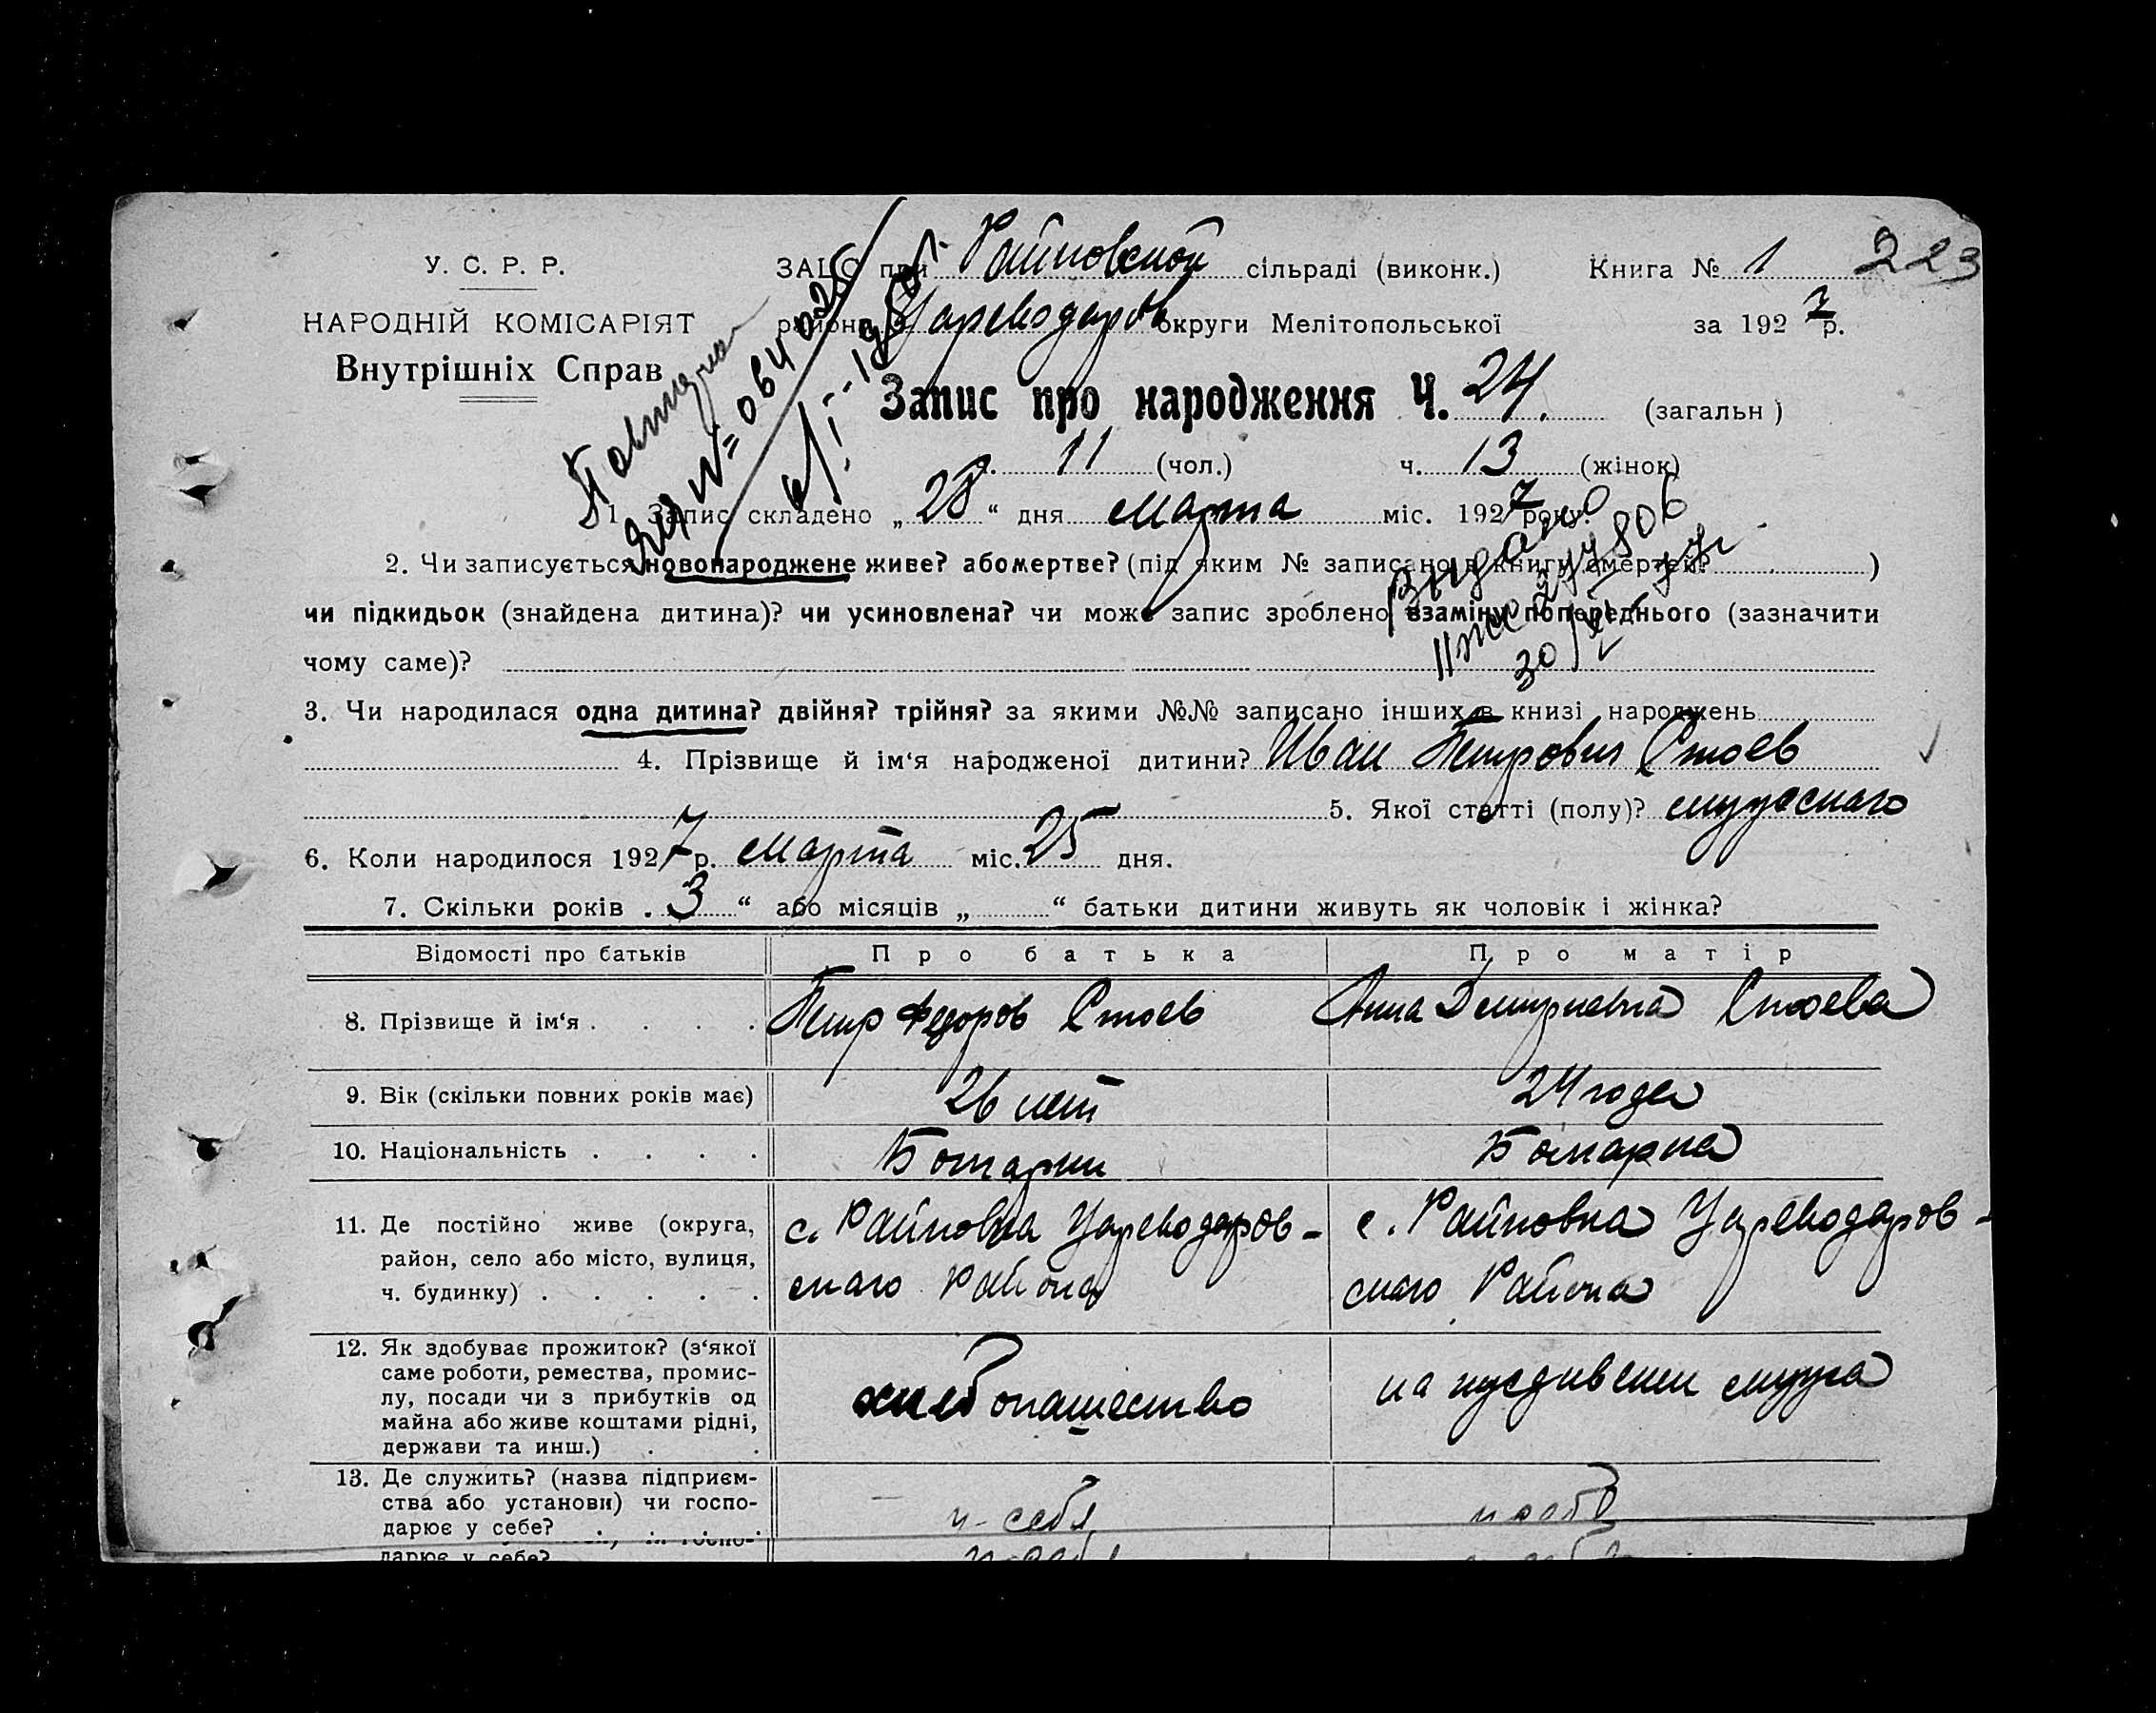 У. С. Р. Р.
НАРОДНІЙ КОМІСАРІЯТ
Внутрішніх Справ
ЗАЦС при Райновской сільраді (виконк.) Книга № 1 223
району Цареводаров округи Мелітопольської за 1927 р.
Запис про народження Ч. 24. (загальн )
ч. 11 (чол.) ч. 13 (жінок)
Повторно
№ 064025
1. Запис складено „28“ дня Марта міс. 1927 року.
Выдано
30/VI
2. Чи записується новонароджене живе? або мертве? (під яким № записано в книгу смертей? )
чи підкидьок (знайдена дитина)? чи усиновлена? чи може запис зроблено взаміну попереднього (зазначити
чому саме)?
3. Чи народилася одна дитина? двійня? трійня? за якими №№ записано інших в книзі народжень
4. Прізвище й ім‘я народженої дитини? Иван Петрович Стоев
5. Якої статті (полу)? мужскаго
6. Коли народилося 1927 р. Марта міс. 25 дня.
7. Скільки років „3“ або місяців „ “ батьки дитини живуть як чоловік і жінка?
Відомості про батьків Про батька Про матір
8. Прізвище й ім‘я . . . . Петр Федоров Стоев Анна Демирневна Стоева
9. Вік (скільки повних років має) 26 лет 24 года
10. Національність . . . . Болгарин Болгарка
11. Де постійно живе (округа,
район, село або місто, вулиця,
ч. будинку) . . . . .
с. Райновка Цареводаров-
скаго Района
с. Райновка Цареводаров-
скаго Района
12. Як здобуває прожиток? (з‘якої
саме роботи, ремества, промис-
лу, посади чи з прибутків од
майна або живе коштами рідні,
держави та инш.) . .
хлебопашество
на иждивении мужа
13. Де служить? (назва підприєм-
ства або установи) чи госпо-
дарює у себе? . . . .
у себя
у себя
дарює у себе?